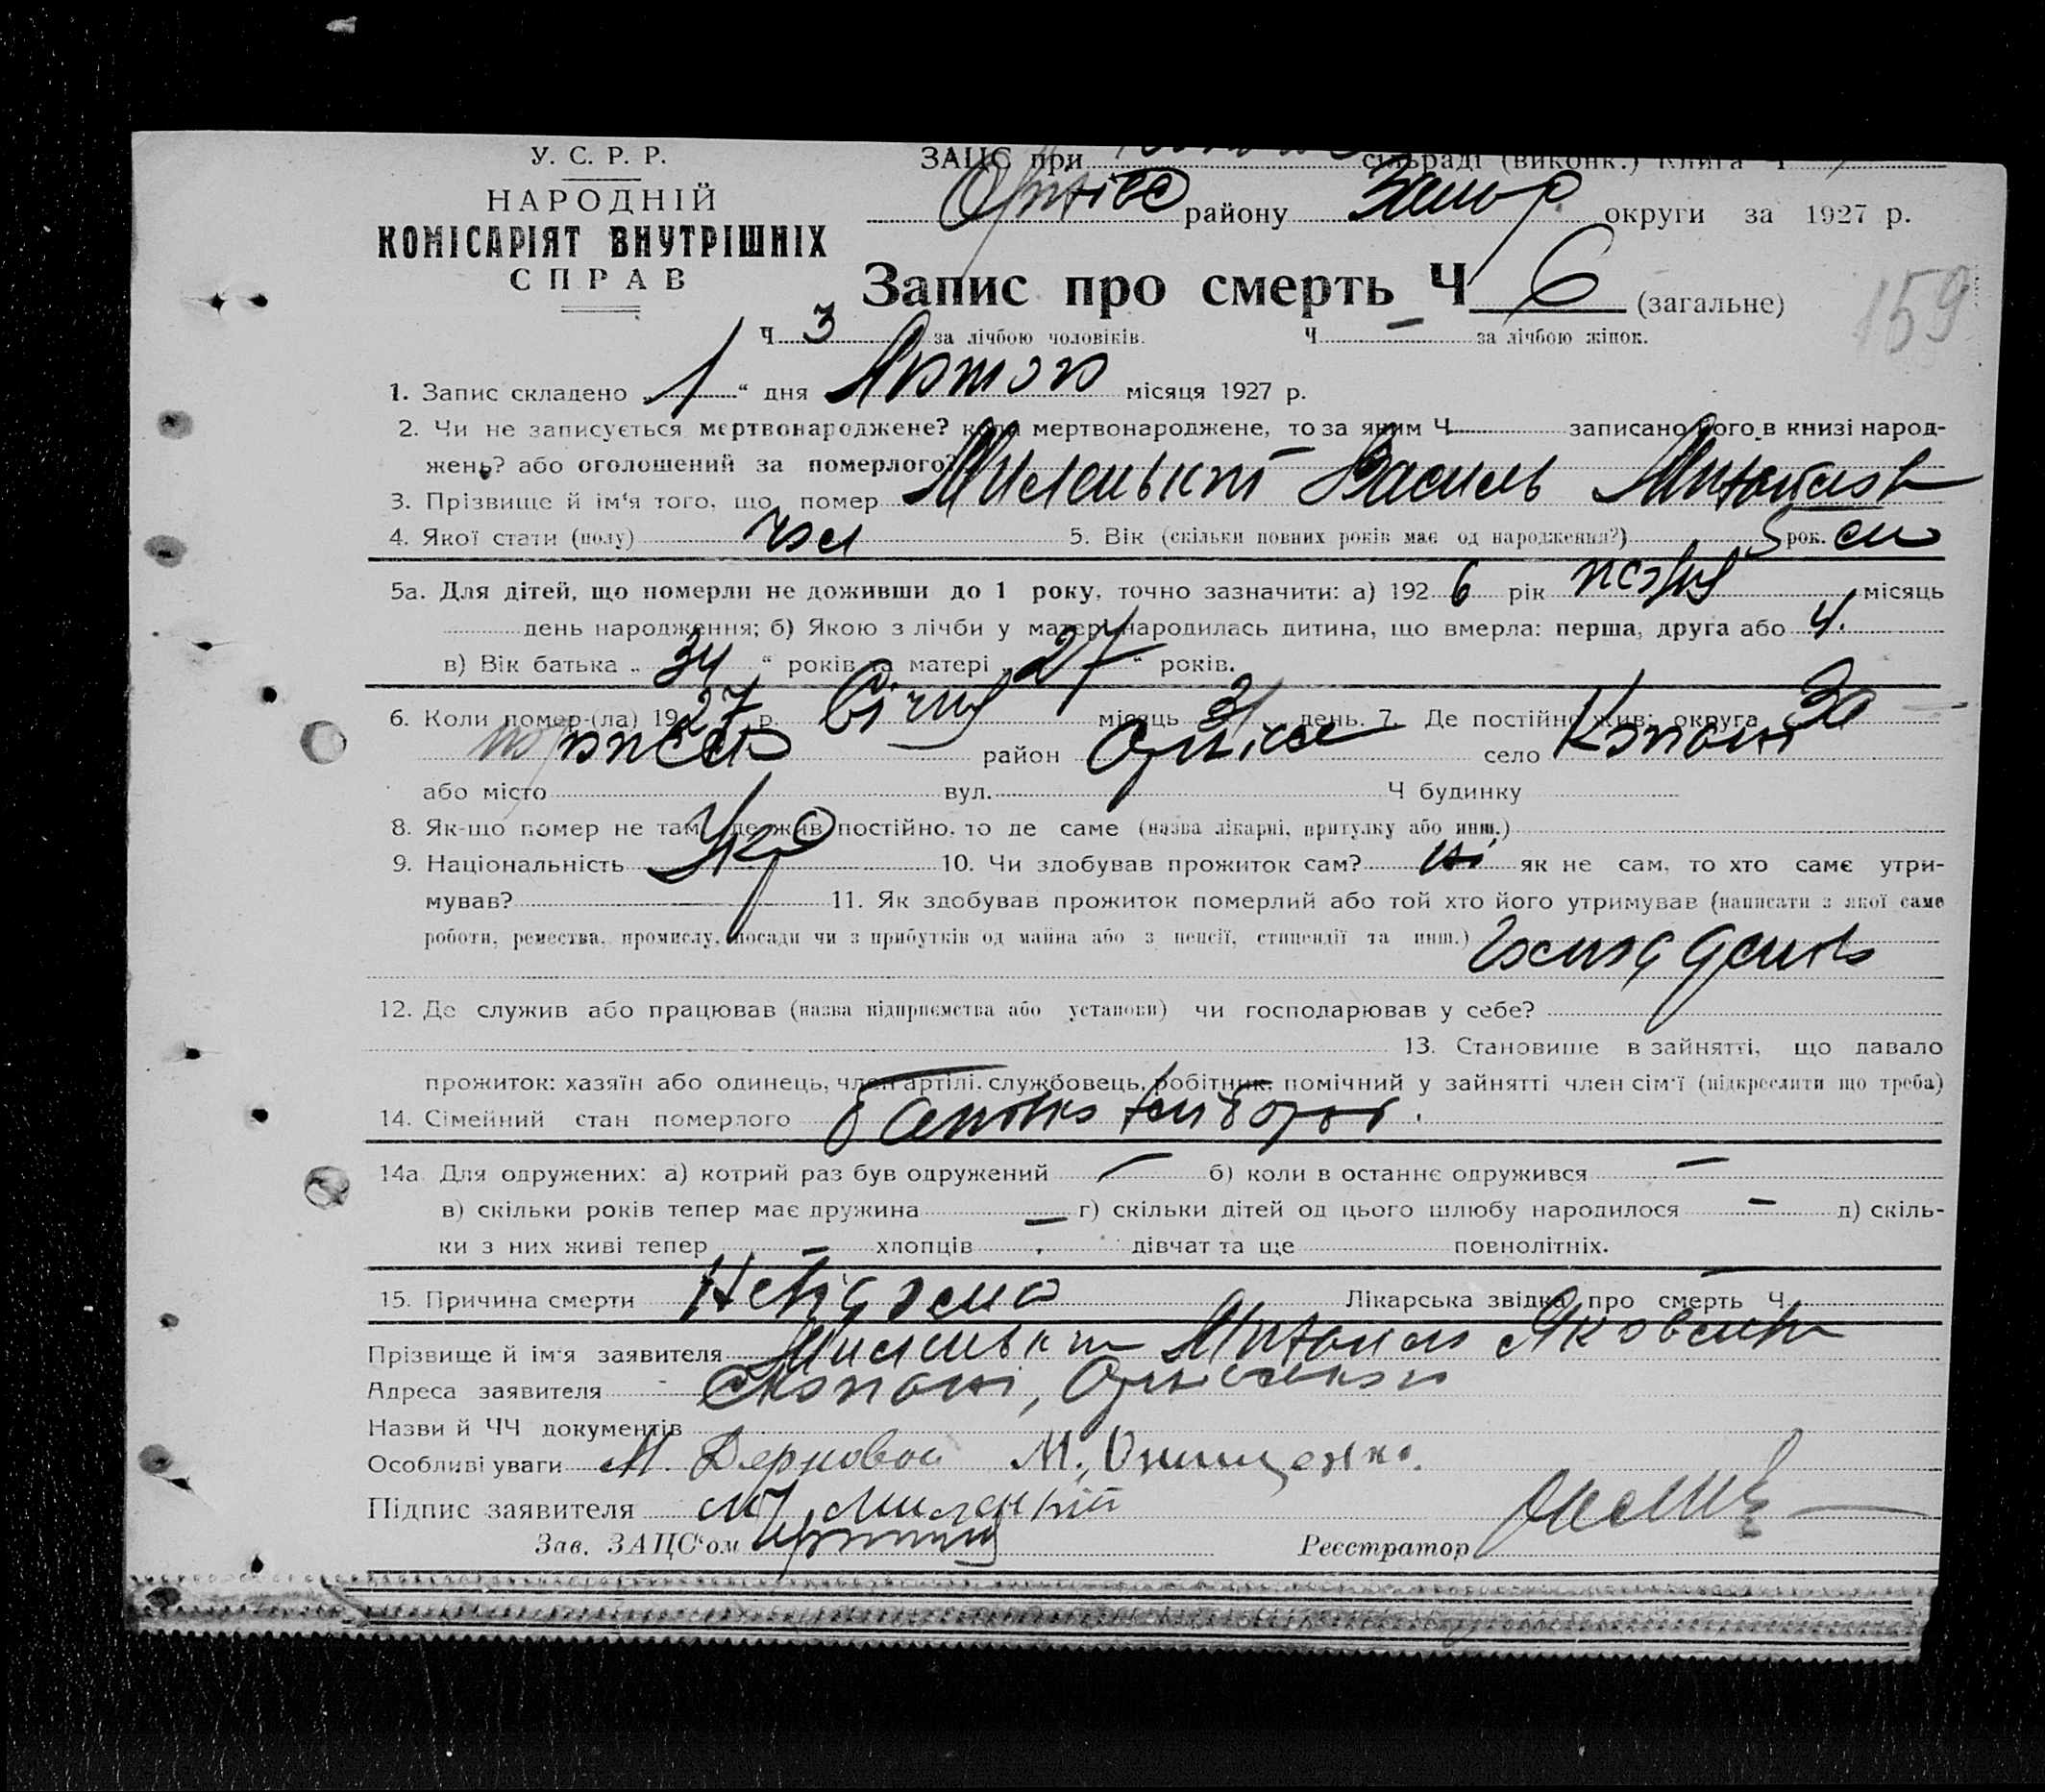 У. С. Р. Р.
НАРОДНІЙ
КОМІСАРІЯТ ВНУТРІШНІХ
СПРАВ
ЗАЦС при сільраді (виконк.) книга Ч
району Запор округи за 1927 р.
Запис про смерть Ч 6 (загальне)
159
Ч 3 за лічбою чоловіків. Ч – за лічбою жінок.
1. Запис складено „1“ дня Лютого місяця 1927 р.
2. Чи не записується мертвонароджене? коли мертвонароджене, то за яким Ч записано його в книзі народ-
жень? або оголошений за померлого?
3. Прізвище й ім'я того, що помер Василь
4. Якої стати (полу) чол 5. Вік (скільки повних років має од народження?) 5 рок.
5а. Для дітей, що померли не доживши до 1 року, точно зазначити: а) 1926 рік місяць
день народження; б) Якою з лічби у матері народилась дитина, що вмерла: перша, друга або 4.
в) Вік батька „34“ років та матері „27“ років.
6. Коли помер-(ла) 1927 р. Січня місяць 31 день. 7. Де постійно жив: округа За
район село Копані
або місто вул. Ч будинку
8. Як-що помер не там, де жив постійно, то де саме (назва лікарні, притулку або инш.)
9. Національність Укр 10. Чи здобував прожиток сам? ні як не сам, то хто саме утри-
мував? 11. Як здобував прожиток померлий або той хто його утримував (написати з якої саме
роботи, ремества, промислу, посади чи з прибутків од майна або з пенсії, стипендії та инш.)
12. Де служив або працював (назва підприємства або установи) чи господарював у себе?
13. Становище в зайнятті, що давало
прожиток: хазяїн або одинець, член артілі, службовець, робітник, помічний у зайнятті член сім'ї (підкреслити що треба)
14. Сімейний стан померлого
14а Для одружених: а) котрий раз був одружений – б) коли в останнє одружився –
в) скільки років тепер має дружина – г) скільки дітей од цього шлюбу народилося – д) скіль-
ки з них живі тепер – хлопців дівчат та ще повнолітніх.
15. Причина смерти Невідома Лікарська звідка про смерть Ч –
Прізвище й ім'я заявителя
Адреса заявителя Копані,
Назви й ЧЧ документів
Особливі уваги М. М. Онищенко.
Підпис заявителя
Зав. ЗАЦС'ом Реєстратор